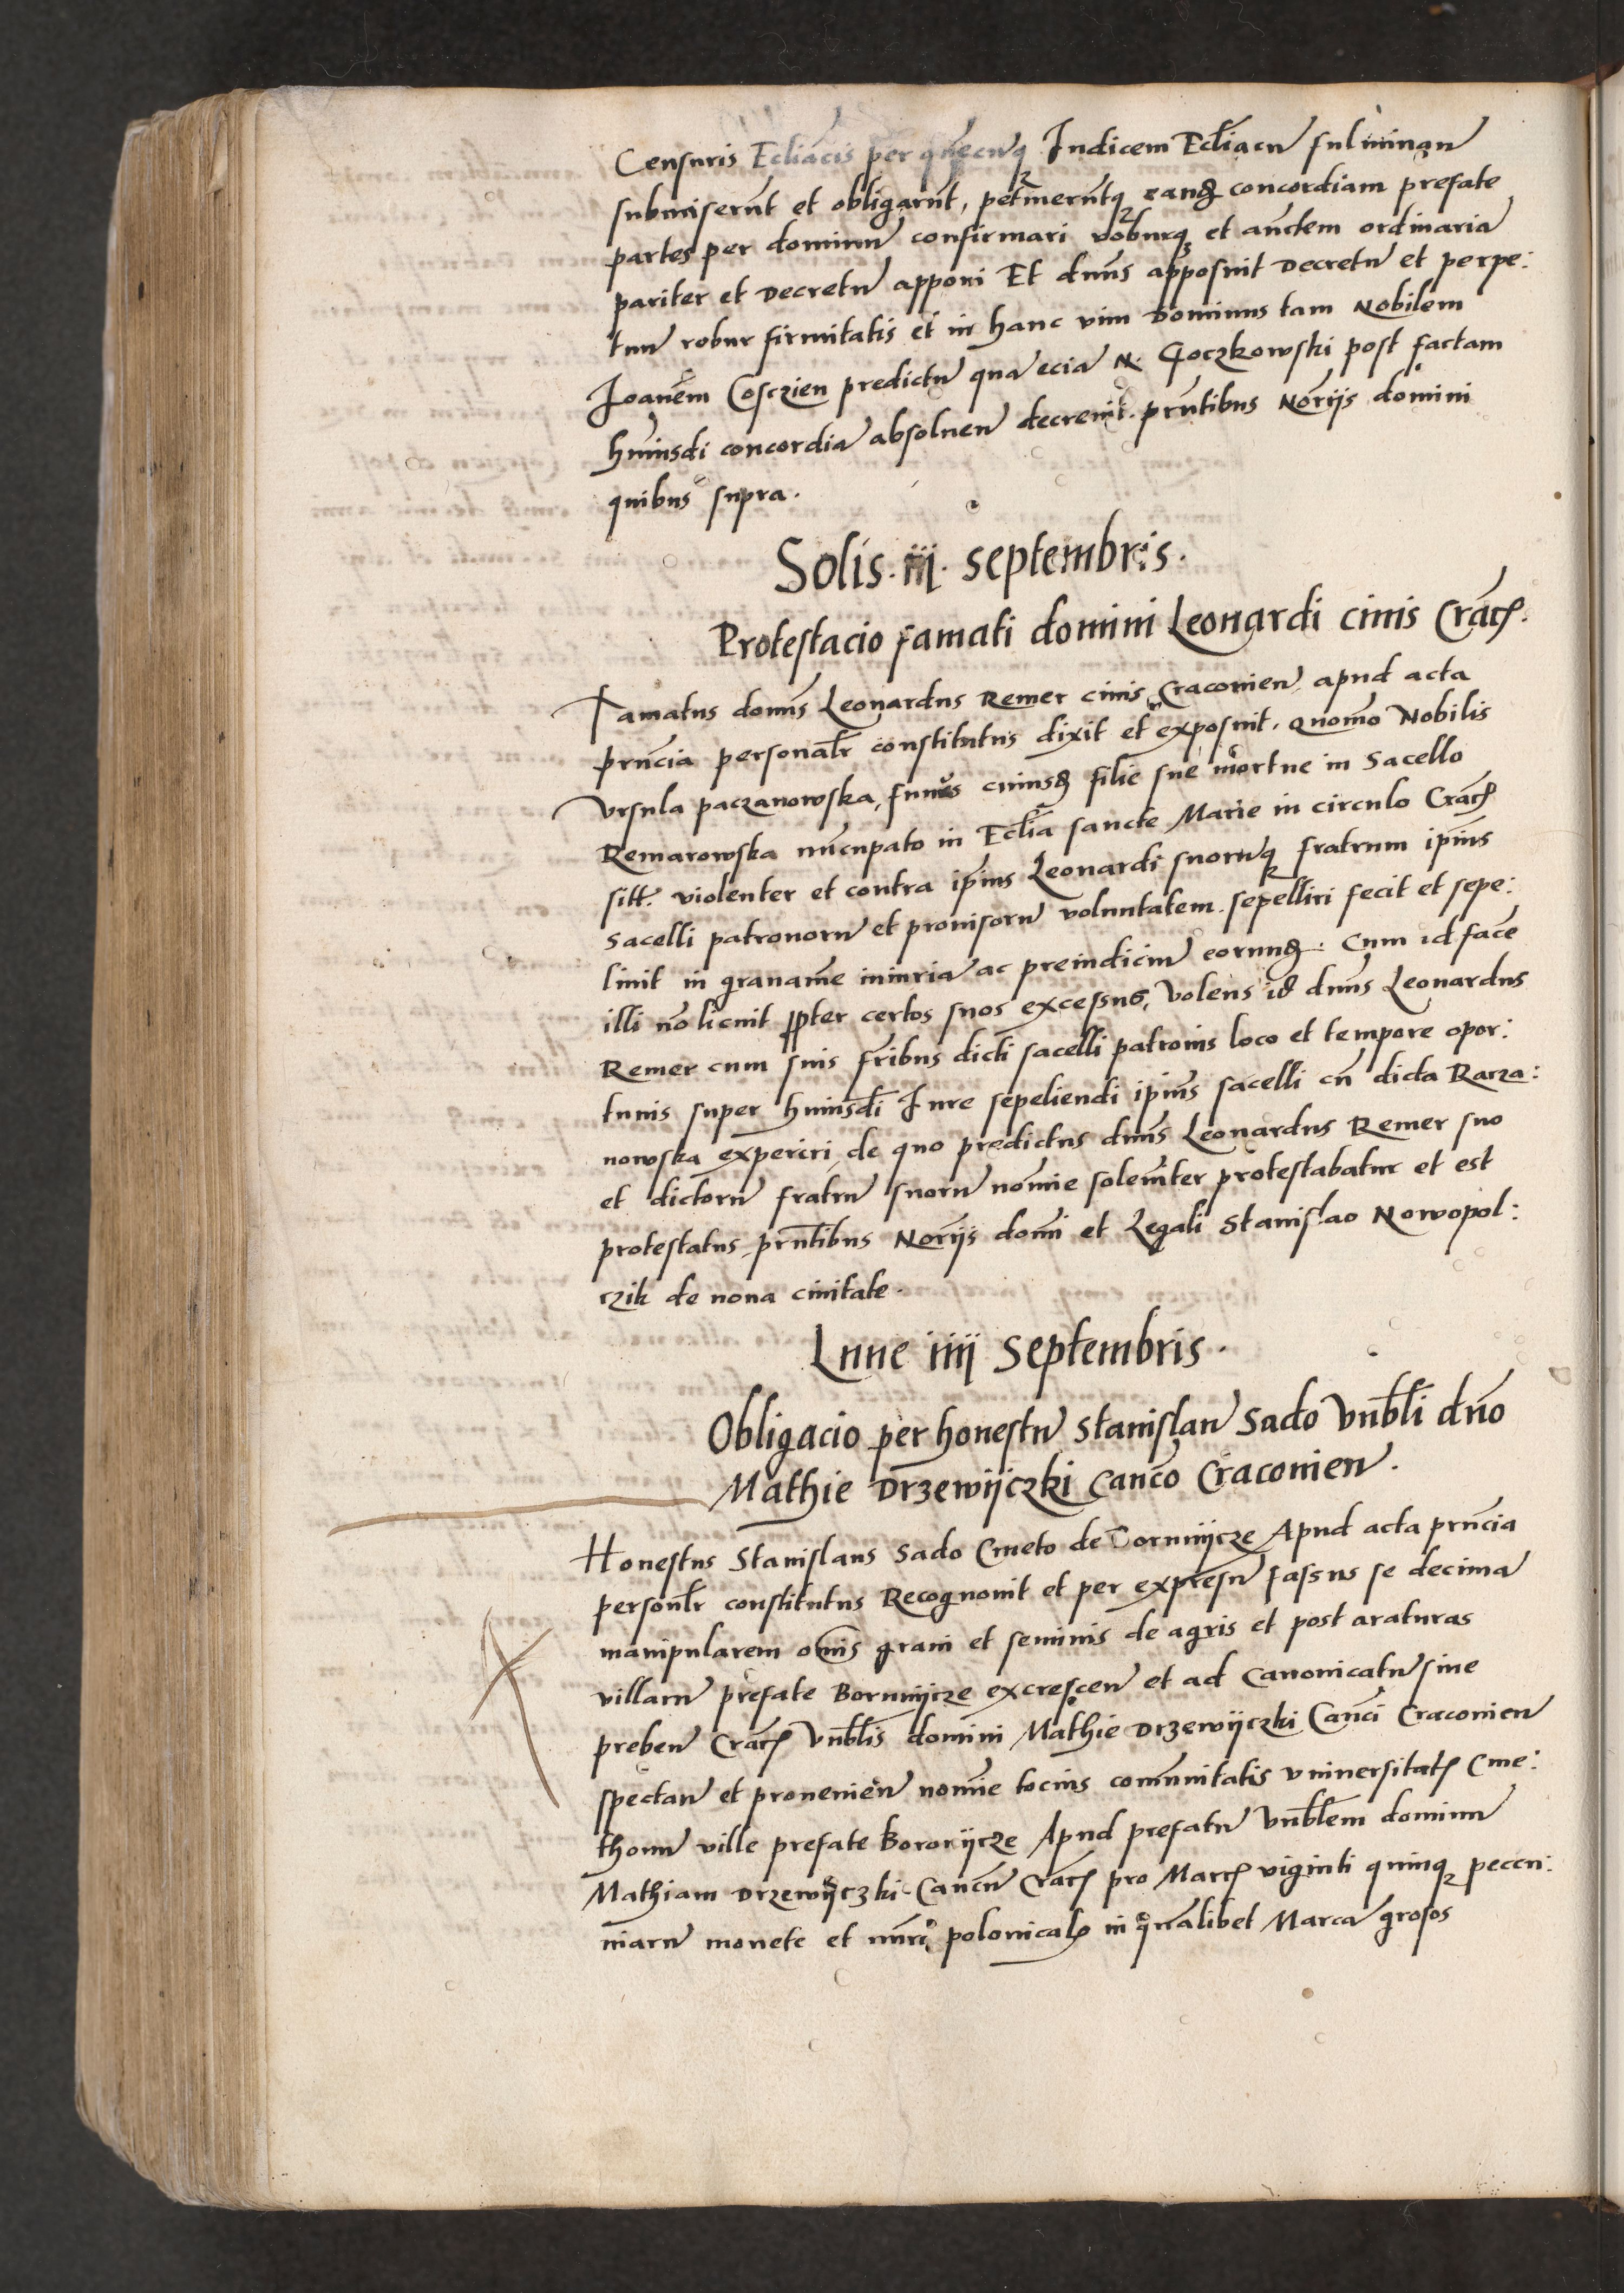 Censuris Eccliacis per quēcūq Iudicem Eccliacū fulminan̄
submiserūt et obligarūt, petiueruntq eandē concordiam prefate
partes per dominū confirmari roburq et auctem ordinariā
pariter et Decretū apponi Et dnūs apposuit Decretū et perpe:
tuū robur firmitatis et in hanc vim Dominus tam Nobilem
Ioanēm Cosczien predictū quā eciā N. Goczkowski post factam
huiusdi concordiā absoluen̄ decreuit. prntibus Norijs domini
quibus supra.
Solis. iij. septembris.
Protestacio famati domini Leonardi ciuis Crac̄.
Famatus domūs Leonardus Remer ciuis Cracouien̄ apud acta
prn̄cia personalr̄ constitutus dixit et exposuit. quomō Nobilis
Vrsula paczanowska, funus cuiusd filie sue mortue in Sacello
Remarowska nūcupato in Eccliā sancte Marie in circulo Crac̄
sitt. violenter et contra ipīus Leonardi suorūq fratrum ipīus
sacelli patronorū et prouisorū voluntatem. sepelliri fecit et sepe:
liuit in grauamē iniuriā ac preiudiciū eorund. Cum id facē
illi nō licuit ppter certos suos excessus, Volens id dnūs Leonardus
Remer cum suis fribus dicti sacelli patronis loco et tempore opor:
tunis super huiusdi Iure sepeliendi ipīus sacelli cū dicta Racza:
nowska experiri, de quo predictus dnūs Leonardus Remer suo
et dictorū fratrū suorū nomīe solemter protestabatur et est
protestatus, prntibus Norijs domi et Legali Stanislao Nowopol:
czik de noua ciuitate.
Lune iiij Septembris.
Obligacio per honestū Stanislaū Sado Vnbli dnō
Mathie Drzewijczki Cancō Cracouien̄.
Honestus Stanislaus Sado Cmeto de Borunijcze Apud acta prn̄cia
personlr̄ constitutus Recognouit et per expresū fassus se decimā
manipularem omīs grani et seminis de agris et post araturas
villarū prefate Borunijcze excrescen̄ et ad Canonicatū siue
preben̄ Crac̄ Vnblis domini Mathie Drzewijczki Canci Cracouien̄
spectan̄ et prouenien̄ nomīe tocius comunitatis vniuersitatȩ Cme:
thonū ville prefate Bororijcze Apud prefatū Vnblem dominū
Mathiam Drzewijczki Cancū Crac̄ pro Marcȩ viginti quinq peccu:
niarū monete et nūri polonicalȩ in qualibet Marcā grosos